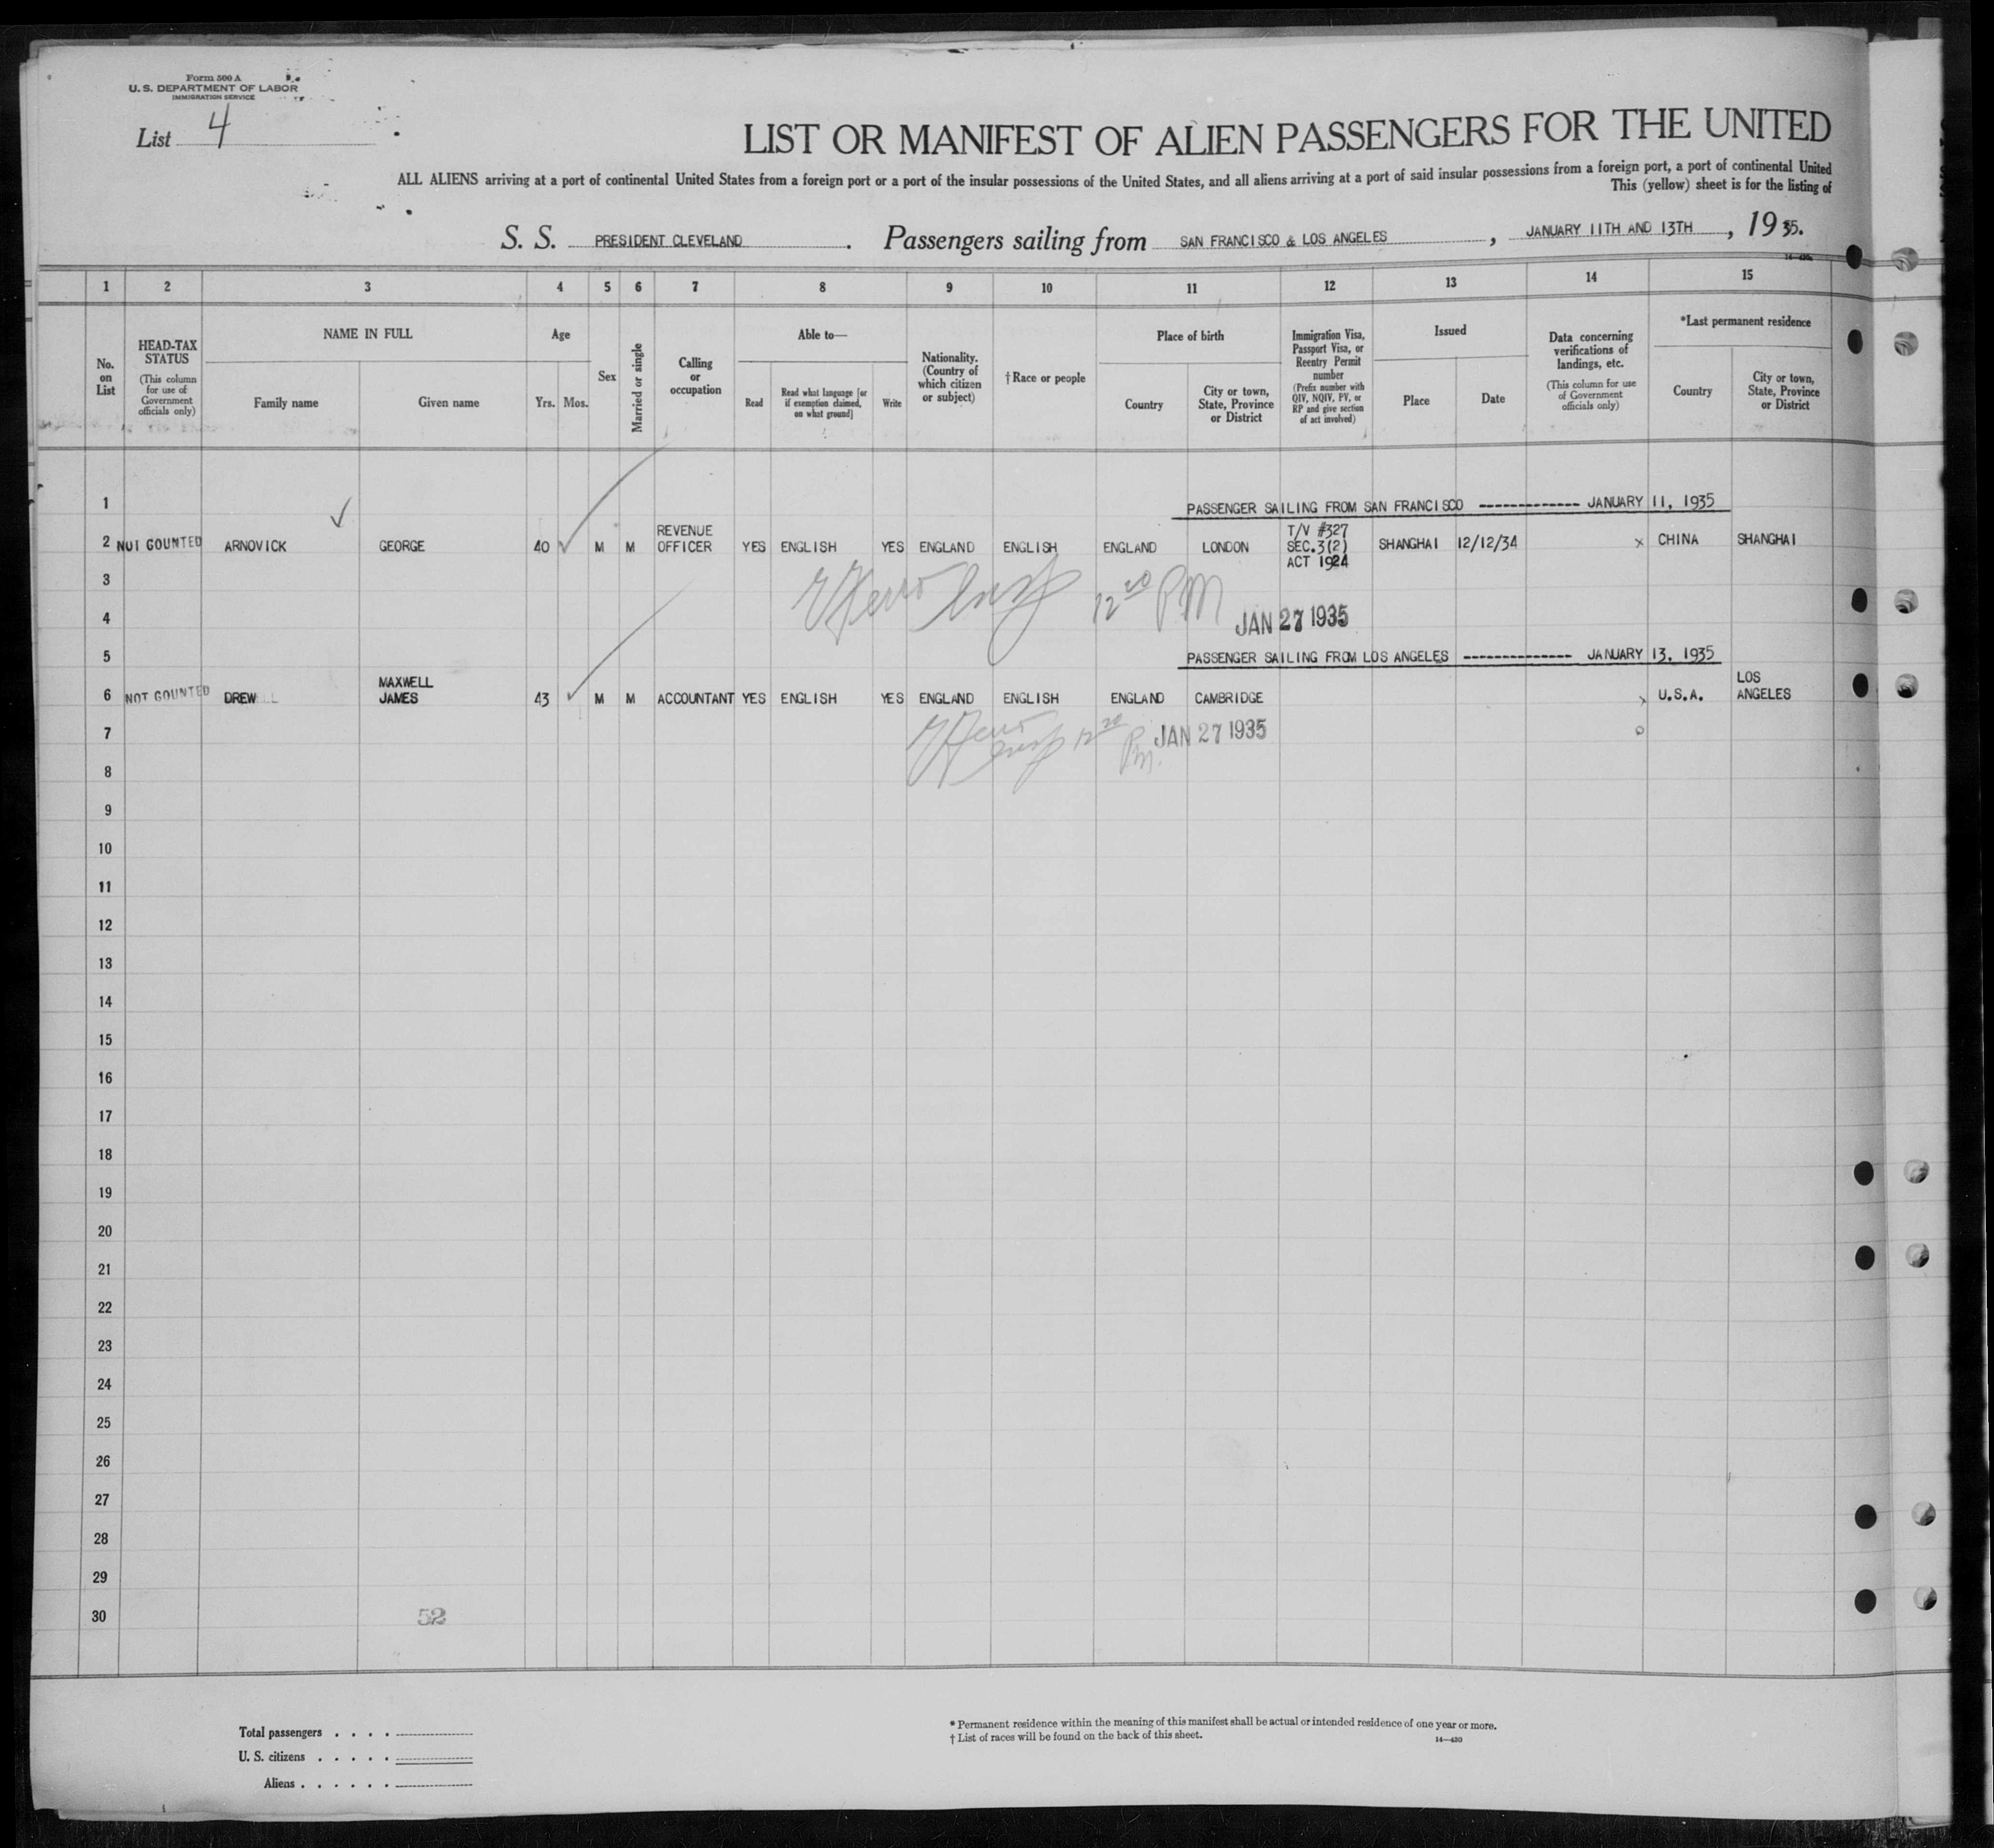 Form 500 A
U. S. DEPARTMENT OF LABOR
IMMIGRATION SERVICE
List 4
LIST OR MANIFEST OF ALIEN PASSENGERS FOR THE UNITED
ALL ALIENS arriving at a port of continental United States from a foreign port or a port of the insular possessions of the United States, and all aliens arriving at a port of said insular possessions from a foreign port, a port of continental United
This (yellow) sheet is for the listing of
S. S. PRESIDENT CLEVELAND . Passengers sailing from SAN FRANCISCO & LOS ANGELES , JANUARY 11TH AND 13TH , 19 35.
1 2 3 4 5 6 7 8 9 10 11 12 13 14 15
No. on List
HEAD-TAX STATUS
(This column for use of Government officials only)
NAME IN FULL
Family name Given name
Age
Yrs. Mos.
Sex
Married or single
Calling or occupation
Able to—
Read
Read what language [or if exemption claimed, on what ground]
Write
Nationality. (Country of which citizen or subject)
† Race or people
Place of birth
Country
City or town, State, Province or District
Immigration Visa, Passport Visa, or Reentry Permit number
(Prefix number with QIV, NQIV, PV, or RP and give section of act involved)
Issued
Place Date
Data concerning verifications of landings, etc.
(This column for use of Government officials only)
*Last permanent residence
Country
City or town, State, Province or District
1 PASSENGER SAILING FROM SAN FRANCISCO ------------- JANUARY 11, 1935
2 NOT COUNTED ARNOVICK GEORGE 40 M M REVENUE OFFICER YES ENGLISH YES ENGLAND ENGLISH ENGLAND LONDON T/V #327 SEC.3(2) ACT 1924 SHANGHAI 12/12/34 x CHINA SHANGHAI
3
12 20 PM
4 JAN 27 1935
5 PASSENGER SAILING FROM LOS ANGELES -------------- JANUARY 13, 1935
6 NOT COUNTED DREW MAXWELL JAMES 43 M M ACCOUNTANT YES ENGLISH YES ENGLAND ENGLISH ENGLAND CAMBRIDGE x U.S.A. LOS ANGELES
7 12 20 PM. JAN 27 1935
8
9
10
11
12
13
14
15
16
17
18
19
20
21
22
23
24
25
26
27
28
29
30 52
Total passengers . . . .
U. S. citizens . . . . .
Aliens . . . . . .
* Permanent residence within the meaning of this manifest shall be actual or intended residence of one year or more.
† List of races will be found on the back of this sheet.
14—430